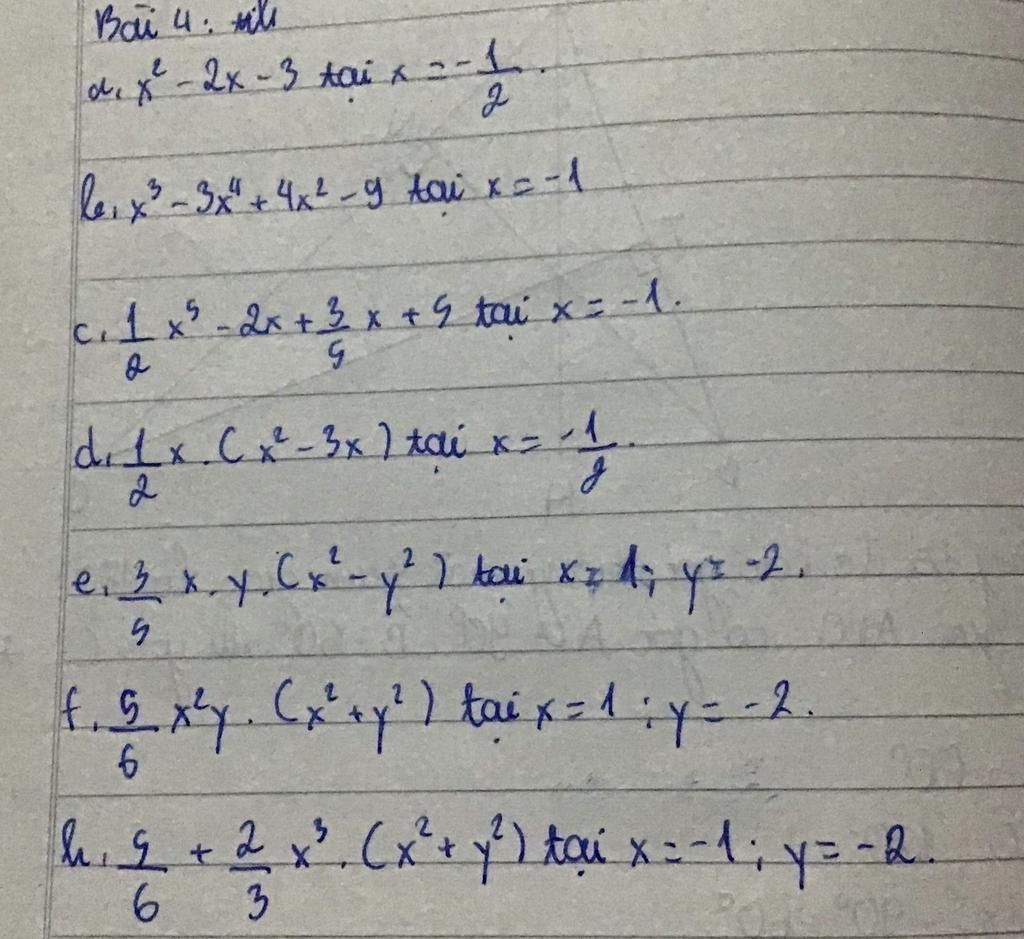 Bài 4:
a, x² - 2x - 3 tại x = -1/2.
b, x³ - 3x⁴ + 4x² - 9 tại x = -1
c, 1/2 x⁵ - 2x + 3/5 x + 5 tại x = -1.
d, 1/2 x. (x² - 3x) tại x = -1/2.
e, 3/5 x. y. (x² - y²) tại x = 1; y = -2.
f, 5/6 x²y. (x² + y²) tại x = 1; y = -2.
h, 5/6 + 2/3 x³. (x² + y²) tại x = -1; y = -2.